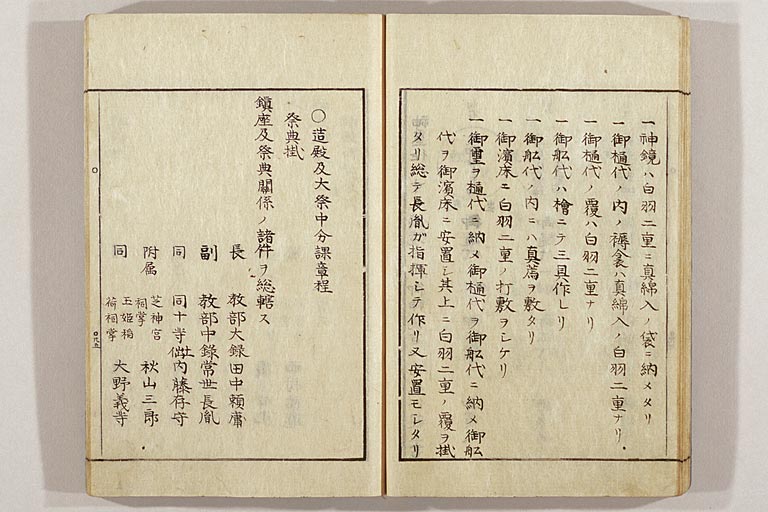 一神鏡ハ白羽二重ニ真綿入ノ袋ニ納メタリ
一御樋代ノ内ノ褥衾ハ真綿入ノ白羽二重ナリ
一御樋代ノ覆ハ白羽二重ナリ
一御舩代ハ檜ニテ三具作レリ
一御舩代ノ内ニハ真薦ヲ敷タリ
一御濱床ニ白羽二重ノ打敷ヲシケリ
一御霊ヲ樋代ニ納メ御樋代ヲ御舩代ニ納メ御舩
代ヲ御濱床ニ安置シ其上ニ白羽二重ノ覆ヲ掛
タリ総テ長胤ガ指揮シテ作リ又安置モシタリ
○造殿及大祭中分課章程
祭典掛
鎮座及祭典關係ノ諸件ヲ総轄ス
長 教部大録田中頼庸
副 教部中録常世長胤
同 同十等出仕内藤存守
附属 芝神宮祠掌 秋山三郎
同 玉姫稲荷祠掌 大野義寺